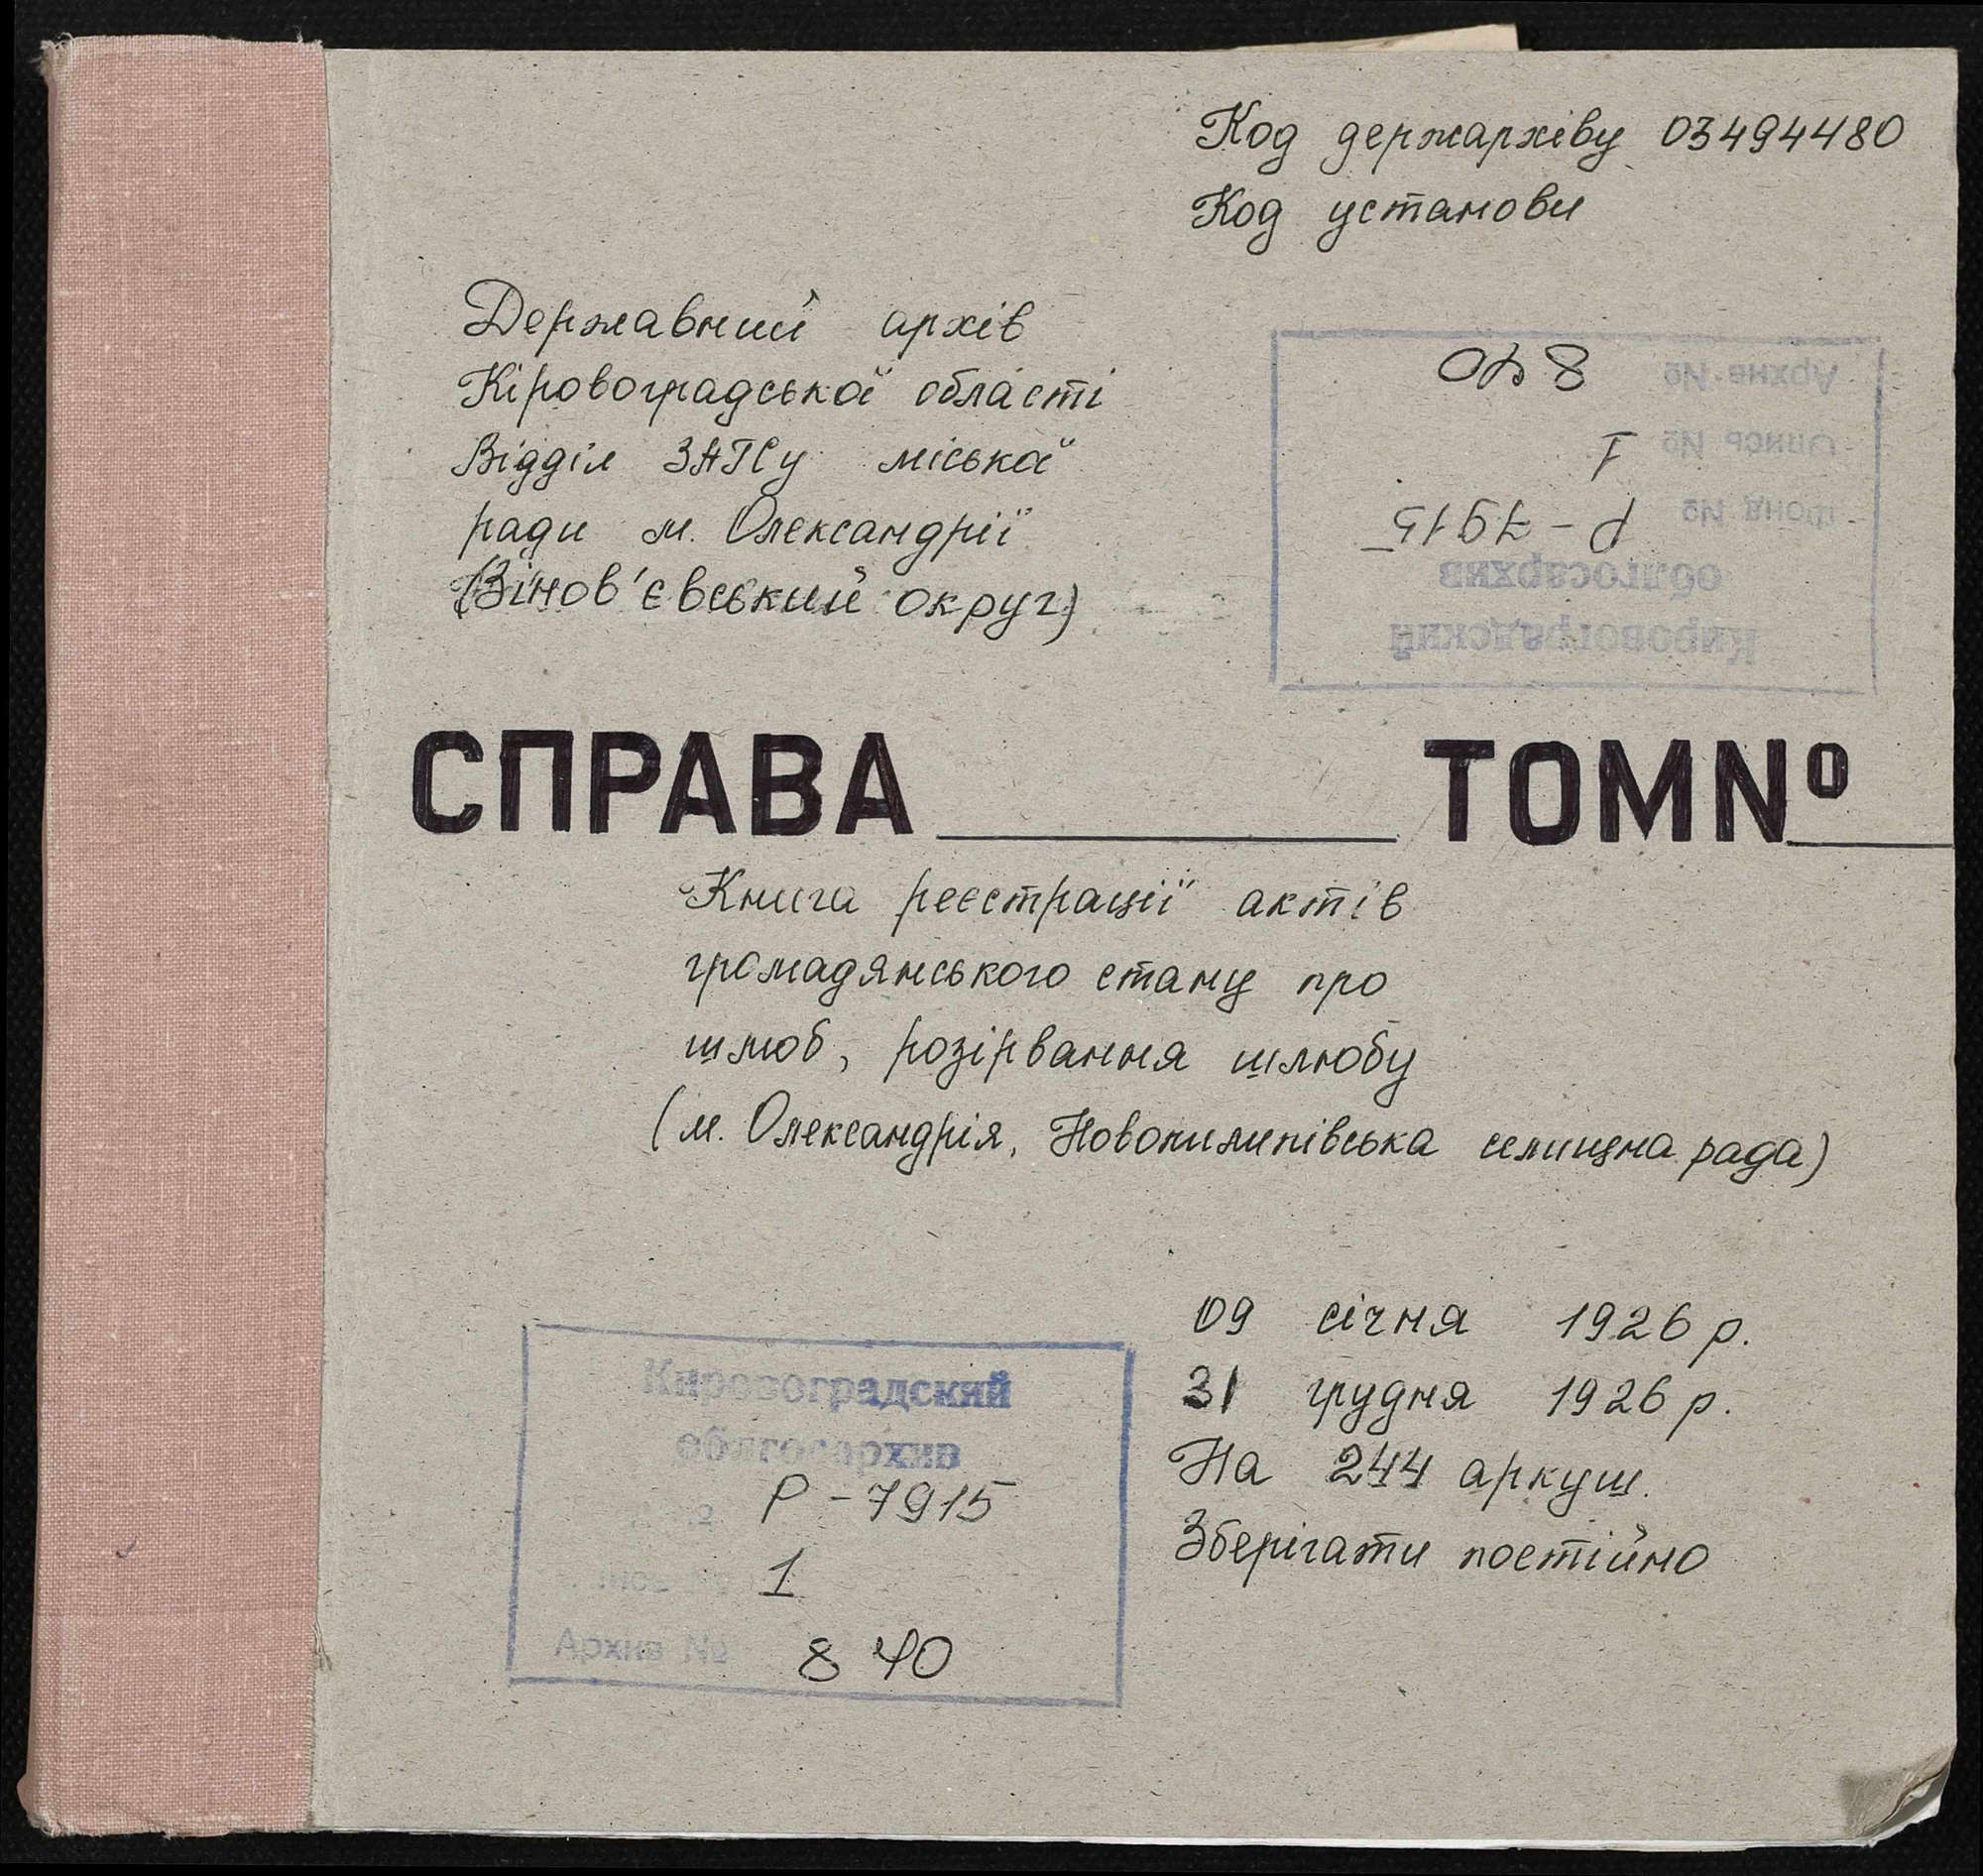 Код держархіву 03494480
Код установи
Державний архів
Кіровоградської області
Відділ ЗАГСу міської
ради м. Олександрії
(Зінов'євський округ)
Кировоградский
облгосархив
Фонд № Р-7915
Опись № 1
Архив № 840
СПРАВА ТОМ№
Книга реєстрації актів
громадянського стану про
шлюб, розірвання шлюбу
(м. Олександрія, Новопилипівська селищна рада)
09 січня 1926 р.
31 грудня 1926 р.
На 244 аркуш.
Зберігати постійно
Кировоградский
облгосархив
Р-7915
1
Архив № 840